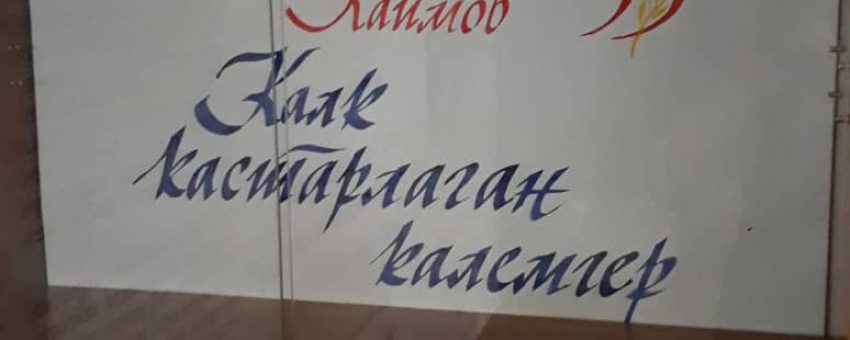 Каимов
Калк
кастарлаган
калемгер